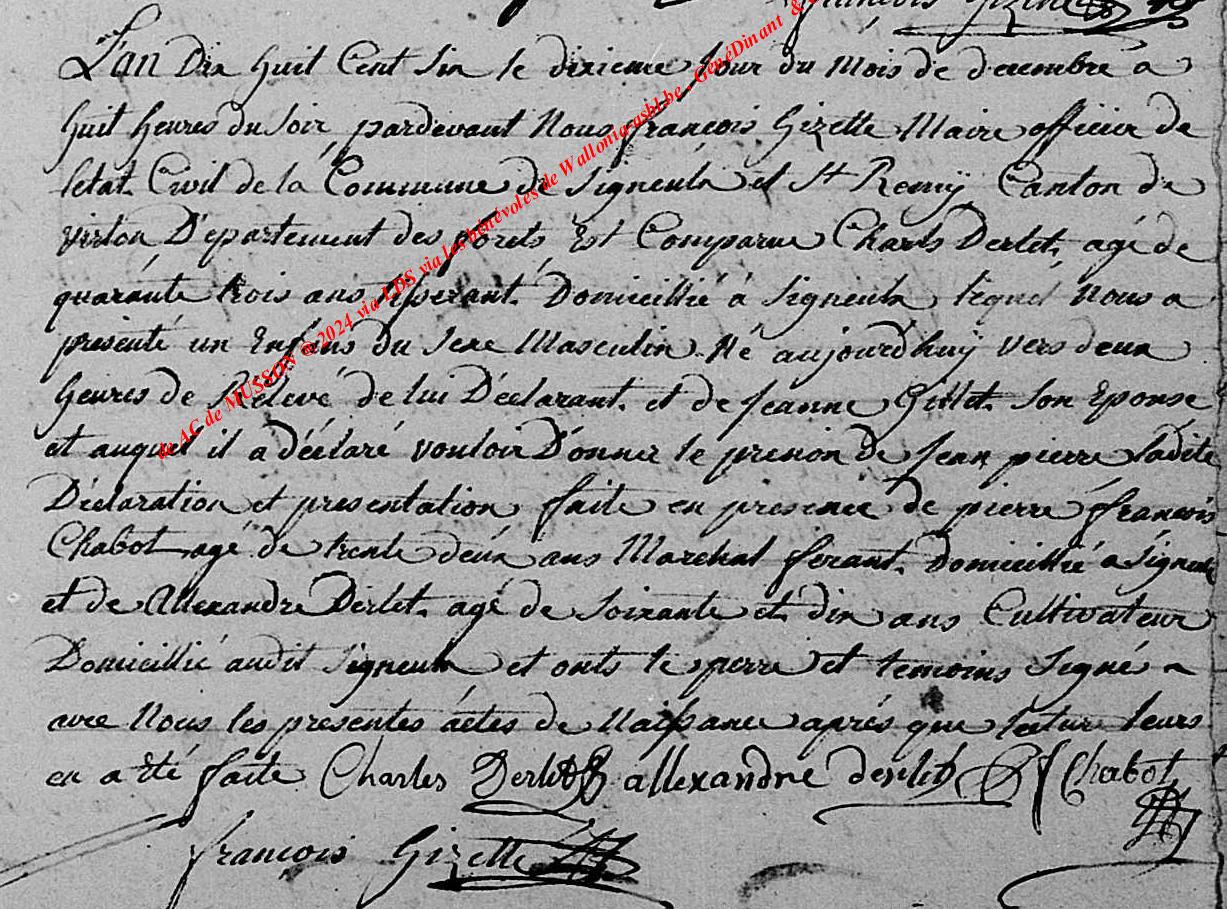 françois Gizette
L'an Dix huit Cent Six le dixieme Jour du Mois de decembre a
huit heures du Soir pardevant Nous françois Gizette Maire officier de
l'etat Civil de la Commune de Signeulx et St Remÿ Canton de
virton D'epartement des forets Est Comparue Charls Derlet agé de
quarante trois ans Domicillié à Signeulx lequel Nous a
presenté un Enfans du Sexe Masculin Né aujourd'huÿ vers deux
heures de Rélevé de lui Déclarant et de Jeanne Gillet Son Epouse
et auquel il a déclaré vouloir Donner le prenon de Jean pierre ladite
Déclaration et presentation faite en presence de pierre françois
Chabot agé de trente deux ans Marchal ferant Domicillié a Signeulx
et de Allexandre Derlet agé de Soixante et dix ans Cultivateur
Domicillié audit Signeulx et onts le perre et temoins Signé
avec Nous les presentes áctes de Naissance aprés que lecture leurs
en a été faite Charles Derlet allexandre derlet P f Chabot
françois Gizette
de AC de MUSSON @2024 via LDS via les bénévoles de Wallonia-asbl.be - GénéDinant &